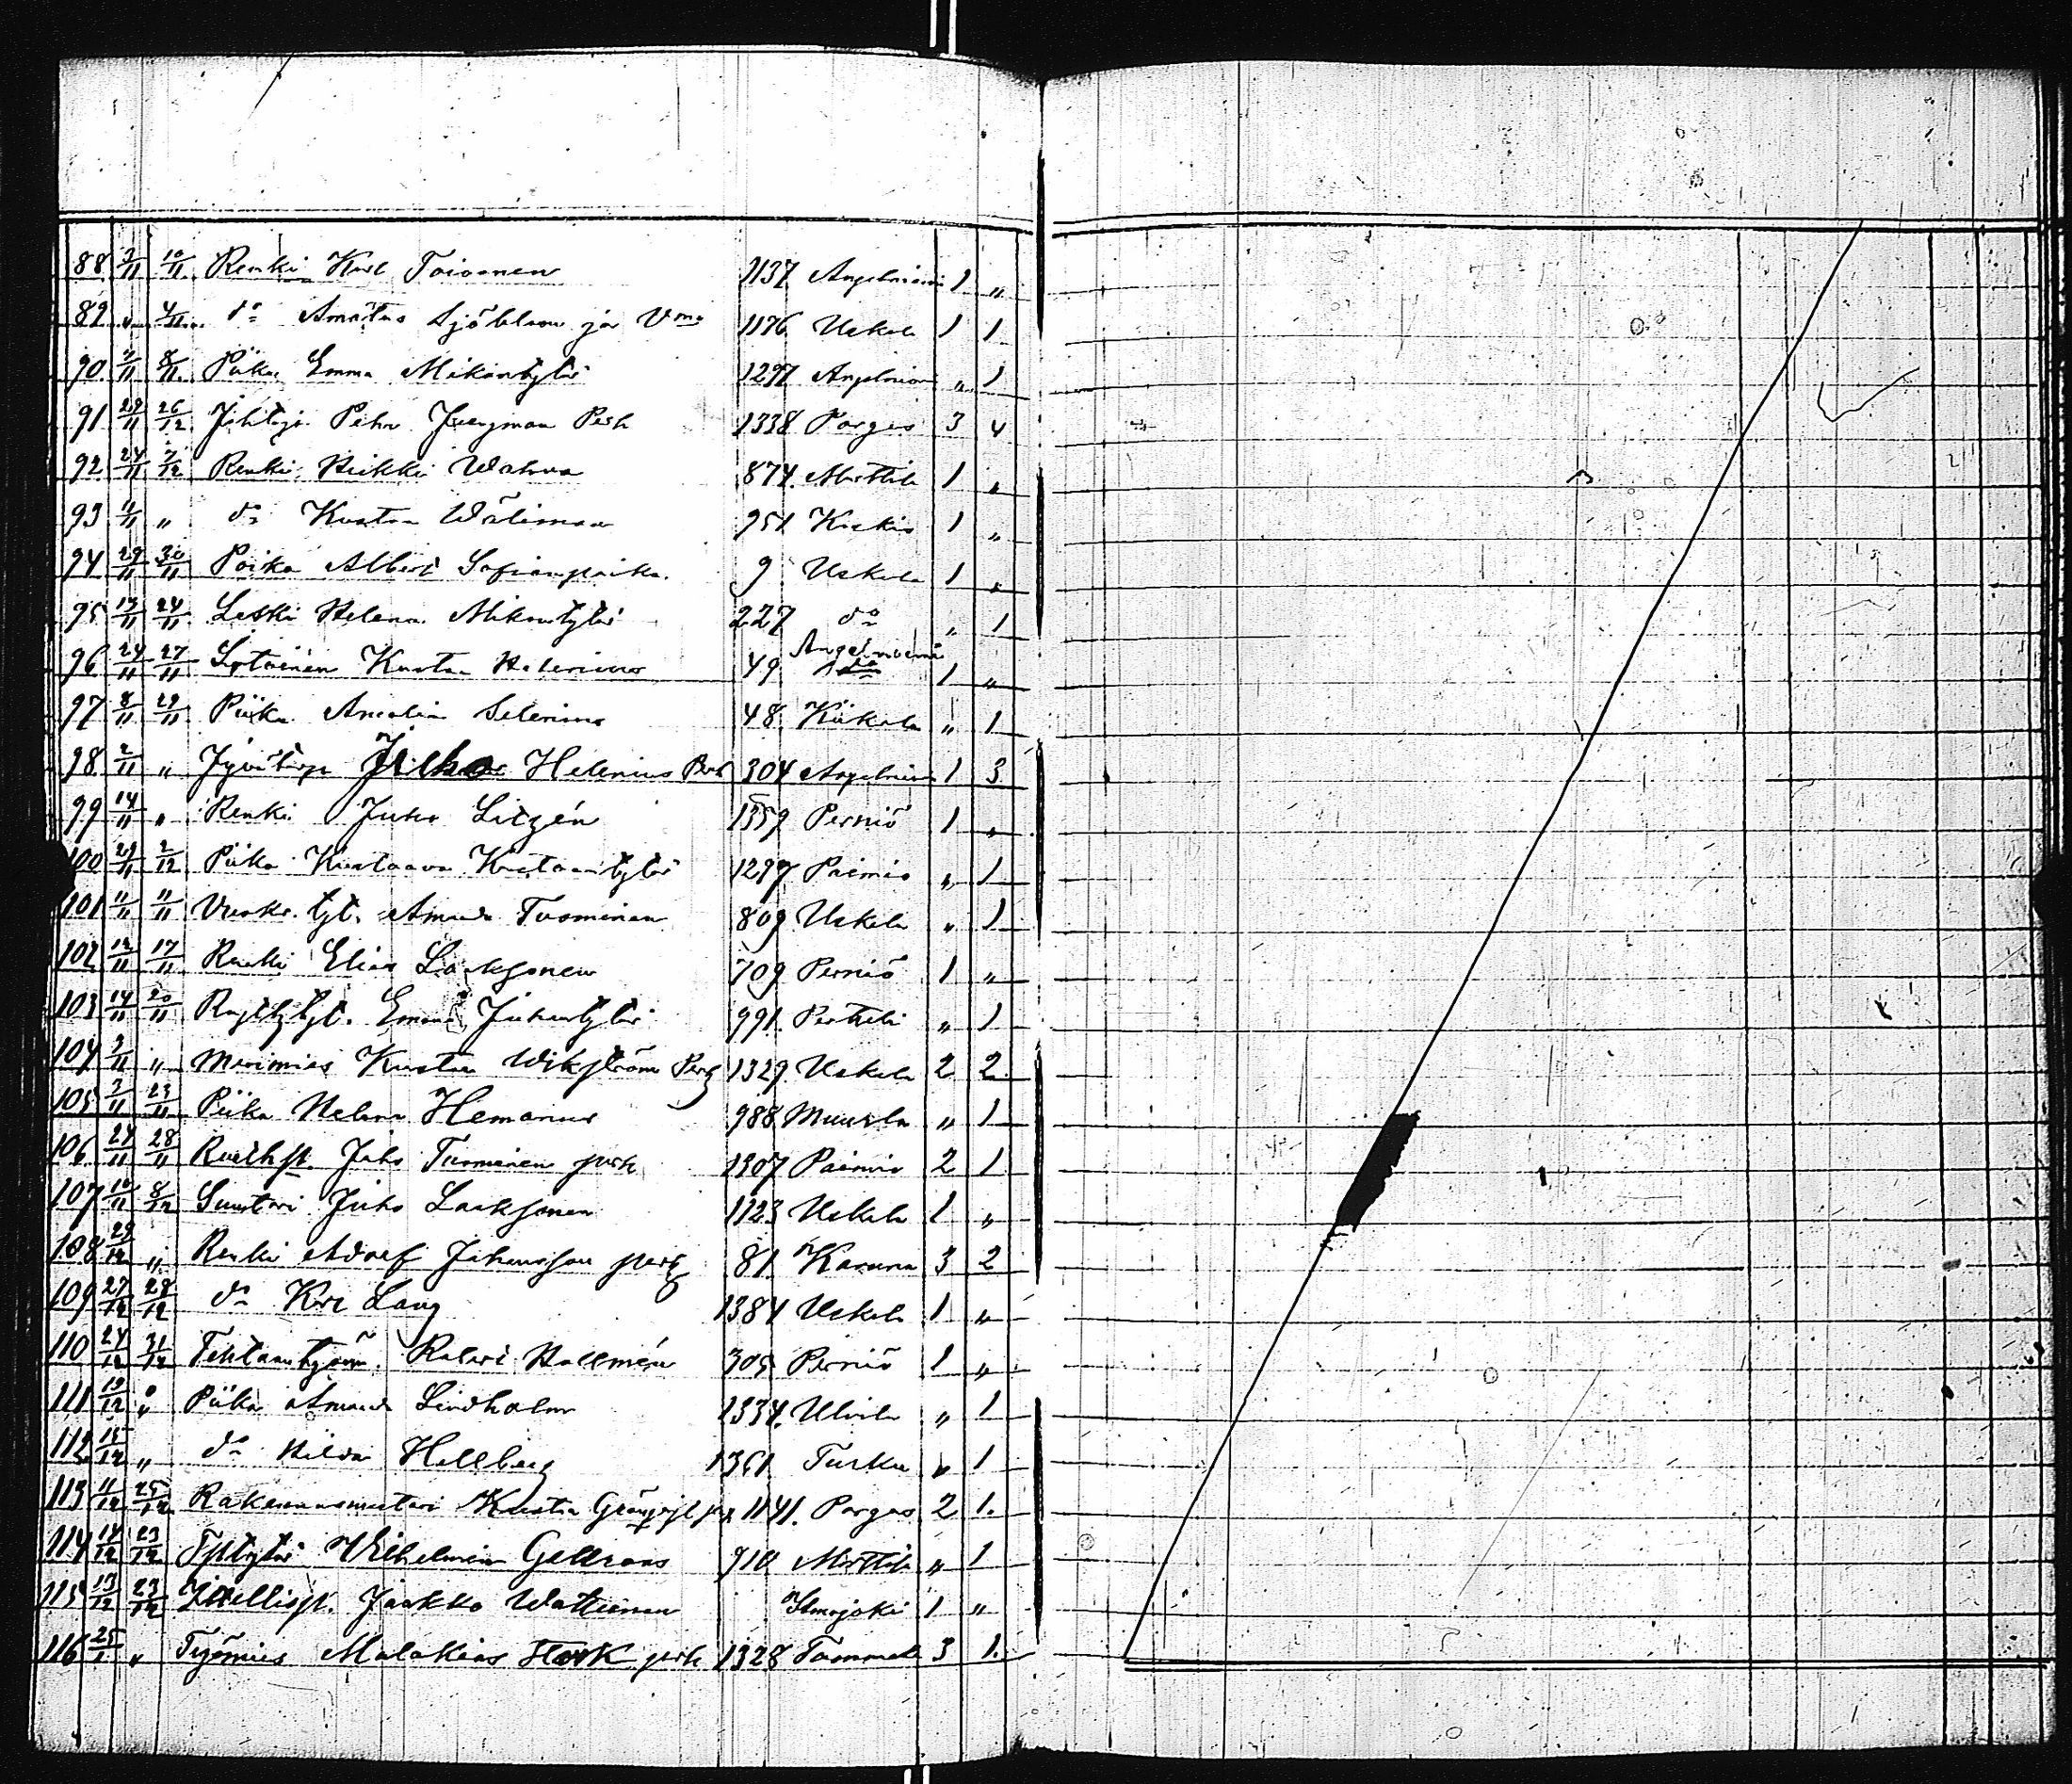 88 3/11 10/11 Renki Karl Toivonen 1137 Angelniemi 1 "
89 " 4/11 do Amatus Sjöblom ja Vmo 1176 Uskela 1 1
90 7/11 8/11 Piika Emma Mikantytär 1297 Angelniemi " 1
91 29/11 26/12 Pehr Jungman Perh 1338 Pargas 3 4
92 24/11 7/12 Renki Heikki Wahva 874 Marttila 1 "
93 11/11 " do Kustaa Wäliman 951 Kiskis 1 "
94 29/11 30/11 Poika Albert Sofianpoika 9 Uskela 1 "
95 13/11 24/11 Leski Helena Mikontytär 227 do " 1
96 24/11 27/11 Kustaa Helenius 49 Angelniemi 1 "
97 8/11 29/11 Piika Amalia Selenius 48 Kiikala " 1
98 2/11 " Helenius Perh 304 Angelniemi 1 3
99 14/11 " Renki Juho Litzén 1359 Perniö 1 "
100 29/11 2/12 Piika Kustaava Kustaantytär 1299 Paimio " 1
101 11/11 11/11 tyt. Amanda Tuominen 809 Uskela " 1
102 12/11 17/11 Renki Elias Laaksonen 709 Perniö 1 "
103 14/11 20/11 Emma Juhantytär 991 Pertteli " 1
104 3/11 " Merimies Kustaa Wikström Perh 1329 Uskela 2 2
105 3/11 23/11 Piika Helena Hemanus 988 Muurla " 1
106 27/11 28/11 Juho Tuominen perh 1307 Paimio 2 1
107 10/11 8/12 Suutari Juho Laaksonen 1123 Uskela 1 "
108 29/12 " Renki Adolf Johansson perh 81 Karuna 3 2
109 27/12 29/12 do Karl Lang 1384 Uskela 1 "
110 24/12 31/12 Kalari Hallmén 305 Perniö 1 "
111 19/12 " Piika Amanda Lindholm 1334 Ulvila " 1
112 15/12 " do Hilda Hellberg 1361 Turku " 1
113 11/12 25/12 Rakennusmestari Kustaa 1141 Pargas 2 1.
114 14/12 23/12 Wilhelmiina 910 Marttila " 1
115 13/12 23/12 Itsellisp. Jaakko Ilmajoki 1 "
116 25/1 " Työmies Malakias Stark perh 1328 Tammela 3 1.